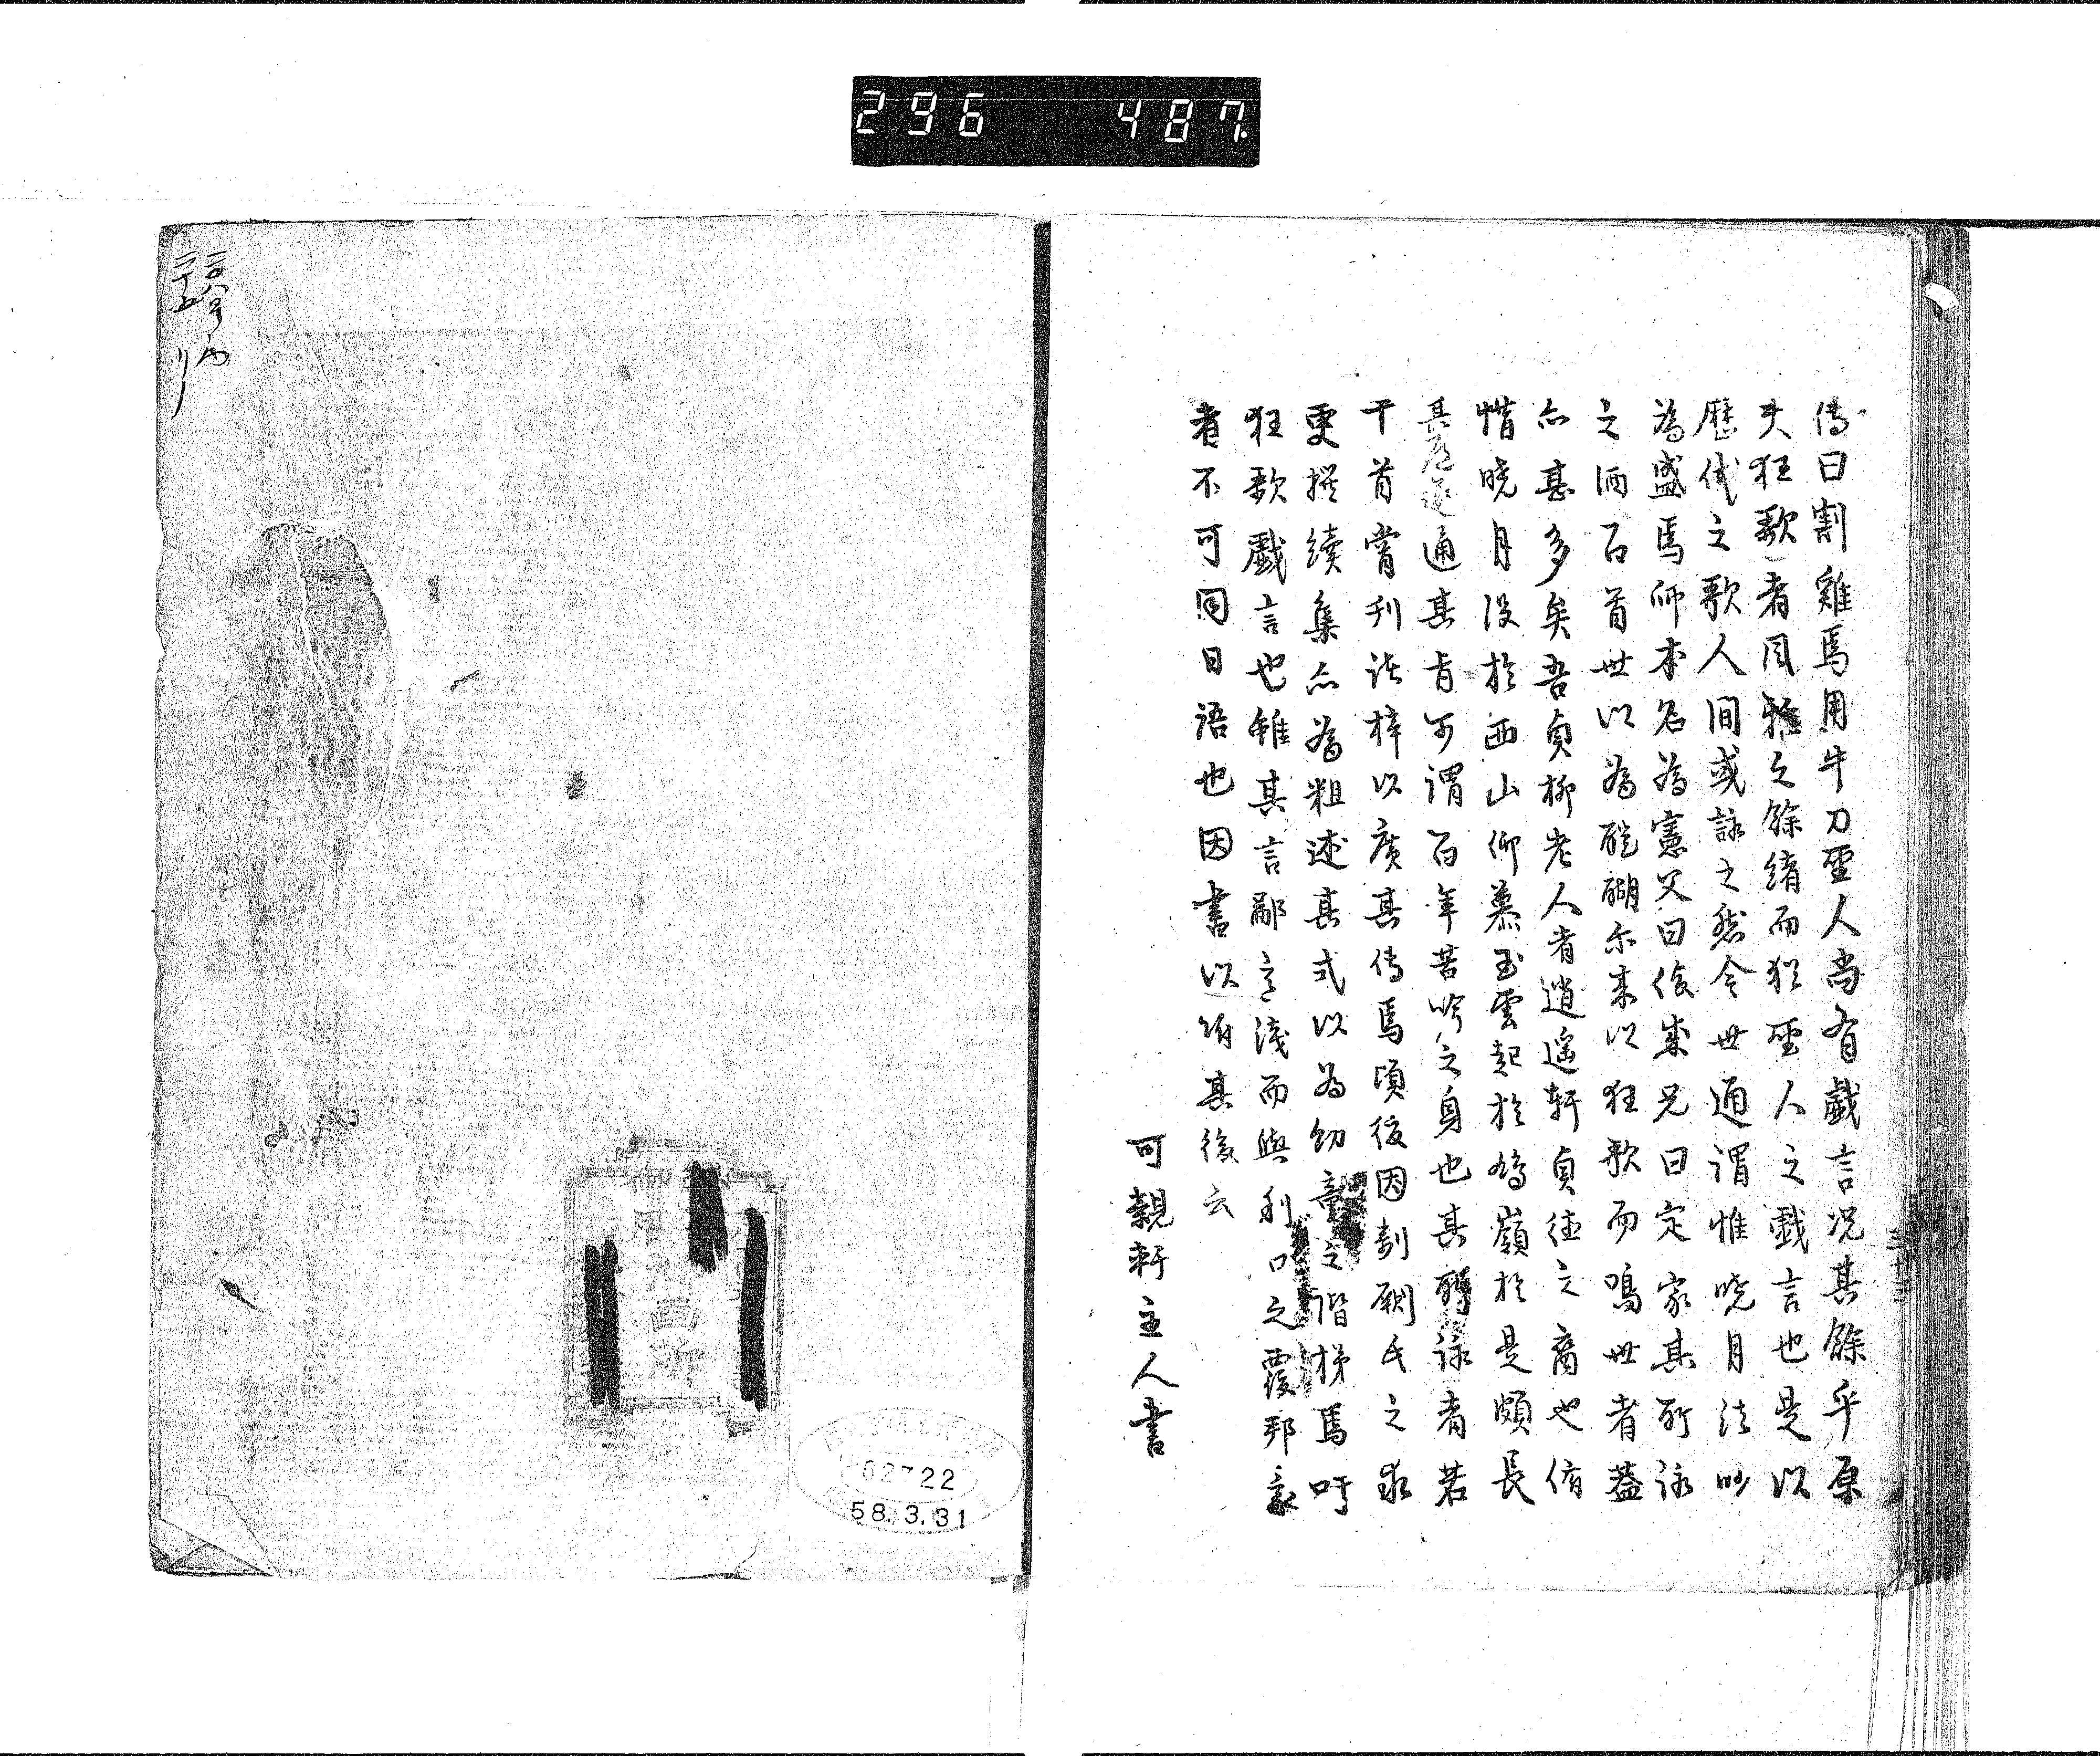 296 487.
傳曰割雞焉用牛刀聖人尚有戯言况其餘乎原
夫狂歌者同雅之餘緒而猶聖人之戯言也是以
歴代之歌人間或詠之然今世通謂惟暁月法師
為盛焉師本名為憲父曰俊成兄曰定家其所詠
之酒百首世以為醍醐尓来以狂歌而鳴世者蓋
亦甚多矣吾貞柳老人者逍遥軒貞徳之裔也俯
惜暁月没於西山仰慕玉雲起於嶺於是頗長
其通其旨可謂百年苦吟之身也其所詠者若
干首嘗刊諸梓以廣其傳焉頃復因剞劂氏之求
更撰續集亦為粗述其式以為幼童之階梯焉吁
狂歌戯言也雖其言鄙意淺而與利口之覆邦家
者不可同日語也因書以附其後云
可親軒主人書
三十三
二〇八号ノ内
62722
58.3.31